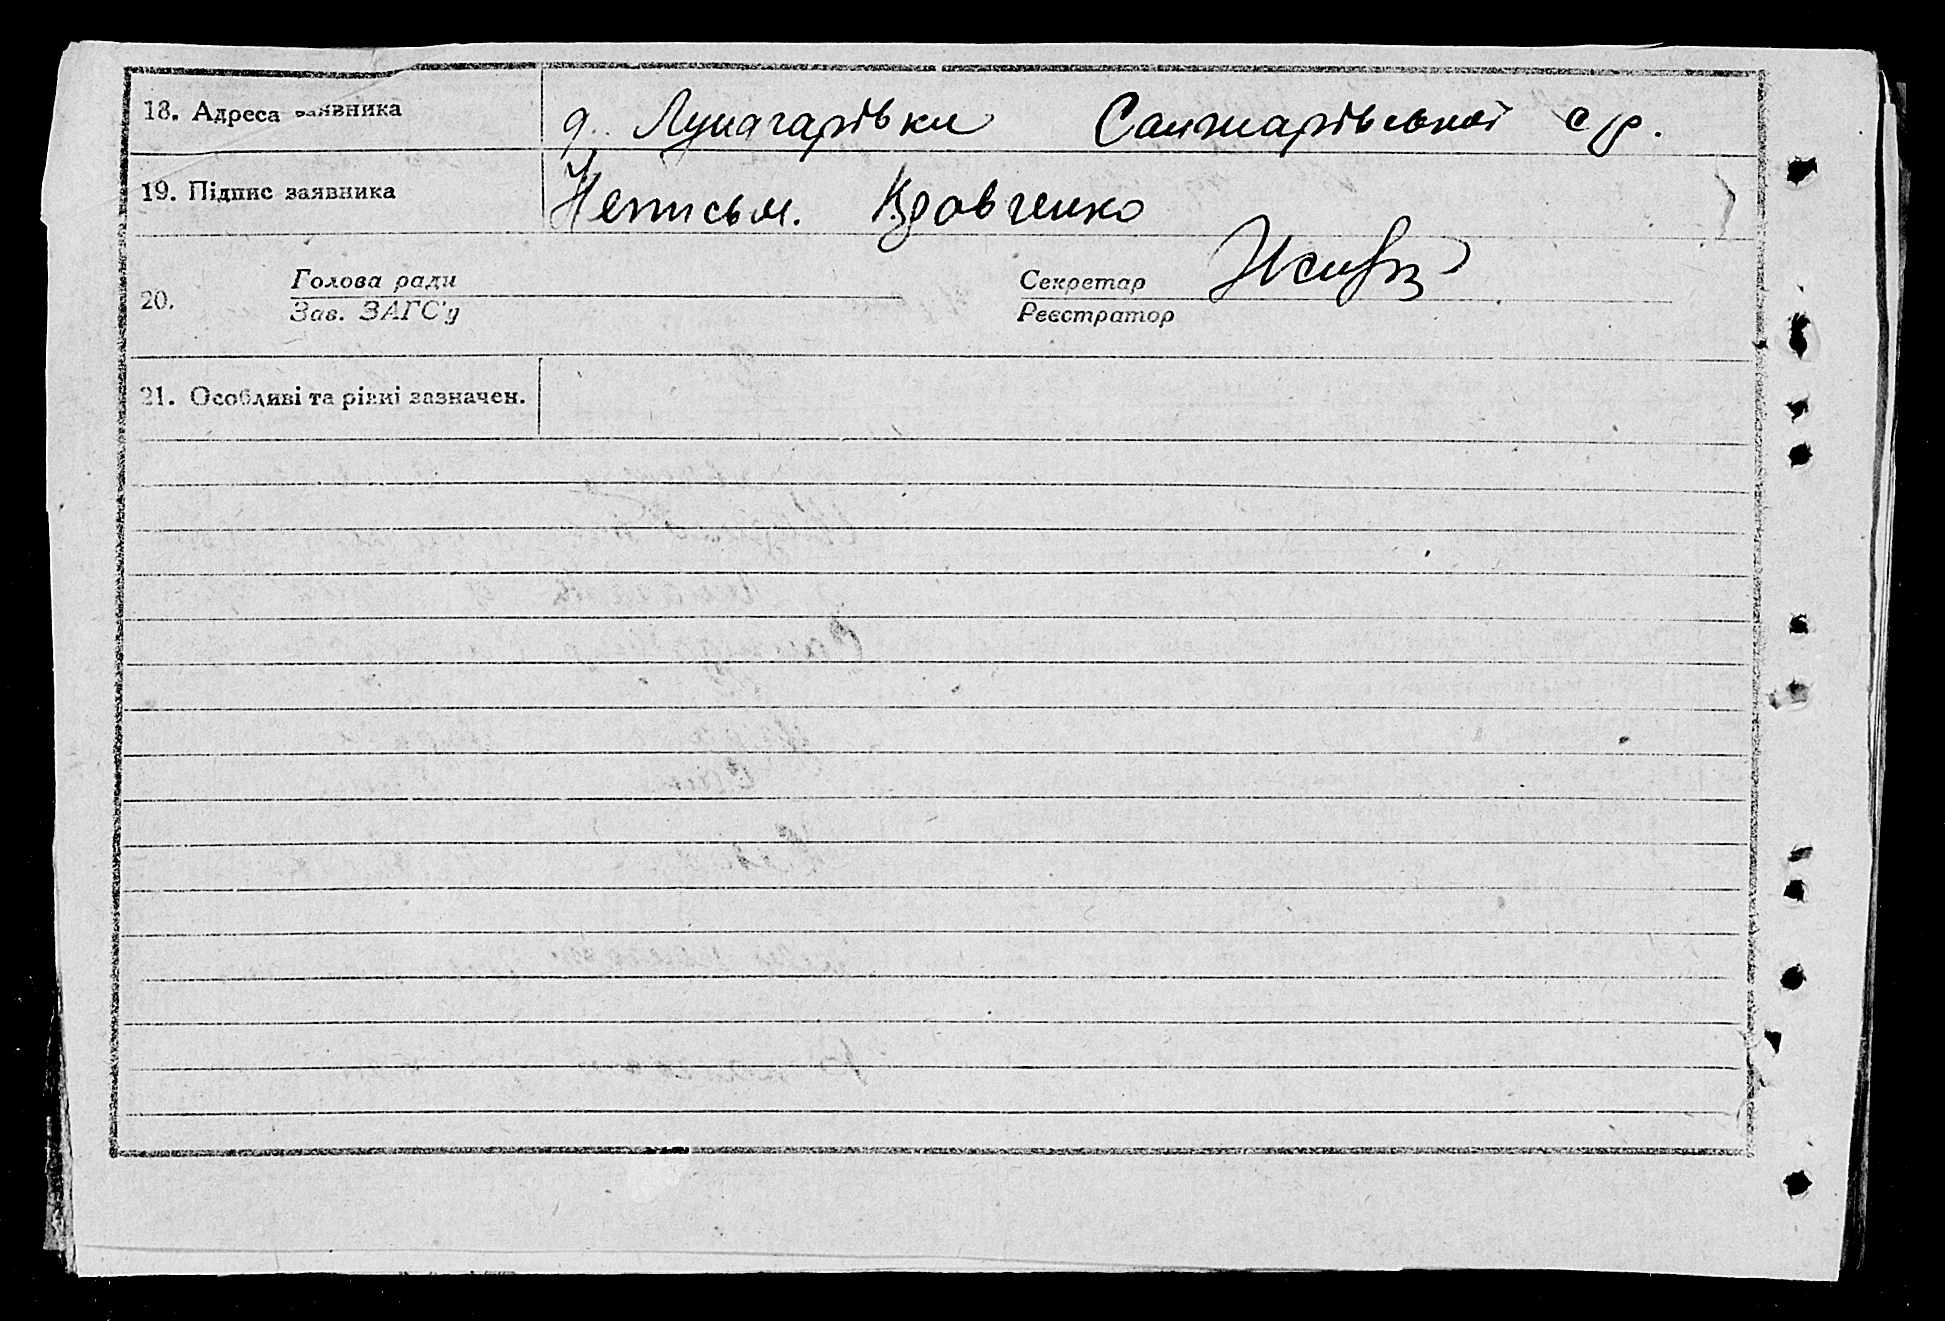 18. Адреса заявника д. Луначарівки Санжарівської с/р.
19. Підпис заявника Неписьм. Вдовченко
20. Голова ради Секретар
Зав. ЗАГС'у Реєстратор
21. Особливі та різні зазначен.